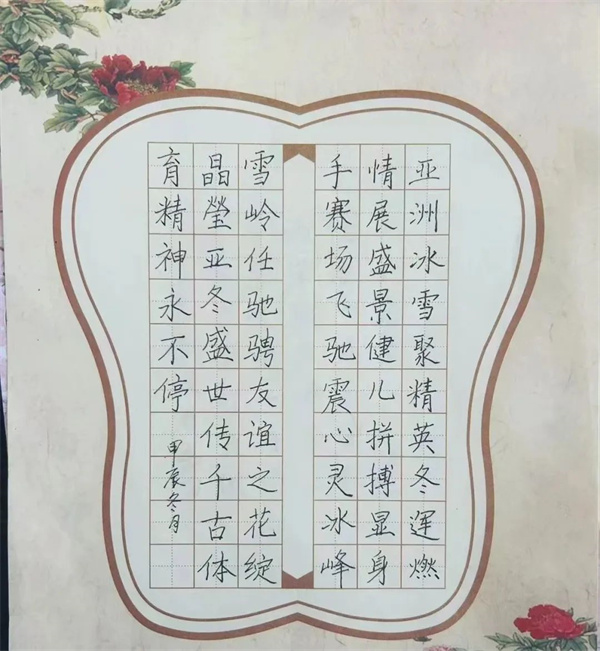 亚洲冰雪聚精英冬运燃
情展盛景健儿拼搏显身
手赛场飞驰震心灵冰峰
雪岭任驰骋友谊之花绽
晶莹亚冬盛世传千古体
育精神永不停
甲辰冬月